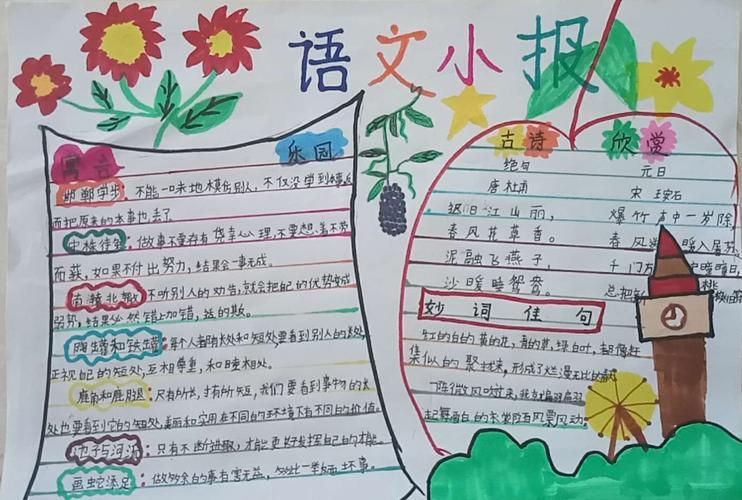 语文小报
寓言 乐园
邯郸学步：不能一味地模仿别人，不仅没学到本领反
而把原来的本事也丢了
守株待兔：做事不要存有侥幸心理，不要想着不劳
而获，如果不付出努力，结果会一事无成。
南辕北辙：不听别人的劝告，就会把自己的优势变成
弱势，结果必然错上加错，远的欺。
陶罐和铁罐：每个人都有长处和短处要看到别人的长处
正视自己的短处，互相尊重，和睦相处。
鹿角和鹿腿：尺有所长，寸有所短，我们要看到事物的长
处也要看到它的短处，美丽和实用在不同的环境下有不同的价值。
池子与河流：只有不断进取，才能更好发挥自己的才能。
画蛇添足：做多余的事有害无益，
坏事。
古诗 欣赏
绝句
唐 杜甫
迟日江山丽，
春风花草香。
泥融飞燕子，
沙暖睡鸳鸯。
元日
宋 王安石
爆竹声中一岁除
春风 暖入屠苏
千门万 曈曈日，
总把新 桃
妙词佳句
红的白的黄的花，青的草，绿的叶，都像赶
集似的聚拢来，形成了烂漫无比的
一阵微风吹过来，
起舞雪白的衣裳随风飘动。